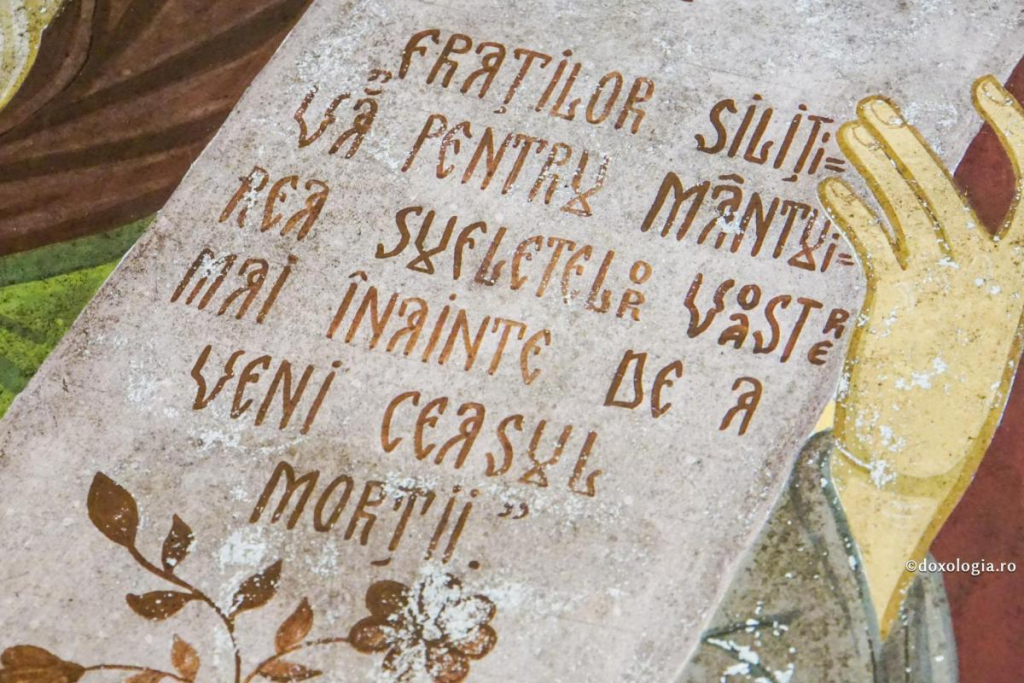 „FRAȚILOR SILIȚI=
VĂ PENTRU MÂNTUI=
REA SUFLETELOR VOASTRE
MAI ÎNAINTE DE A
VENI CEASUL
MORȚII”
©doxologia.ro